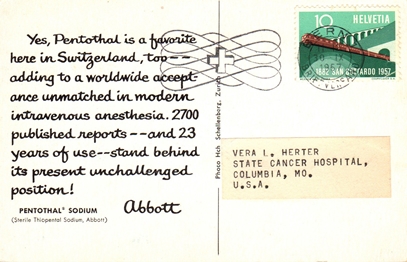 Yes, Pentothal is a favorite
here in Switzerland, too --
adding to a worldwide accept-
ance unmatched in modern
intravenous anesthesia. 2700
published reports -- and 23
years of use -- stand behind
its present unchallenged
position!
Abbott
PENTOTHAL® SODIUM
(Sterile Thiopental Sodium, Abbott)
Photo Hch Schellenberg, Zurich
10 HELVETIA
1882 SAN GOTTARDO 1957
VERA L. HERTER
STATE CANCER HOSPITAL,
COLUMBIA, MO.
U.S.A.